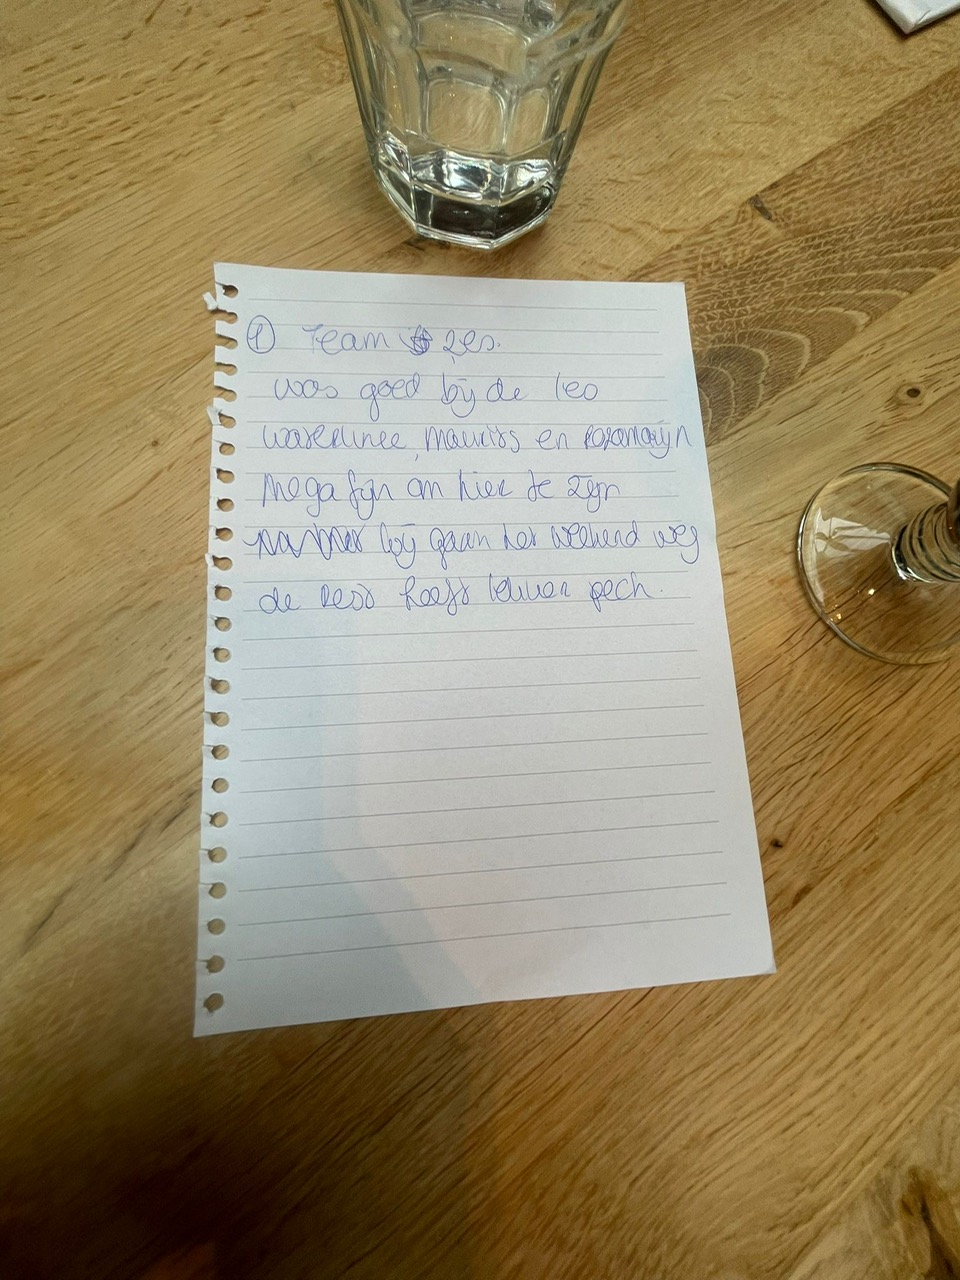 ① Team zes.
was goed bij de leo
, maurits en rozamarijn
mega fijn om hier te zijn
wij gaan het weekend weg
de rest heeft lekker pech.